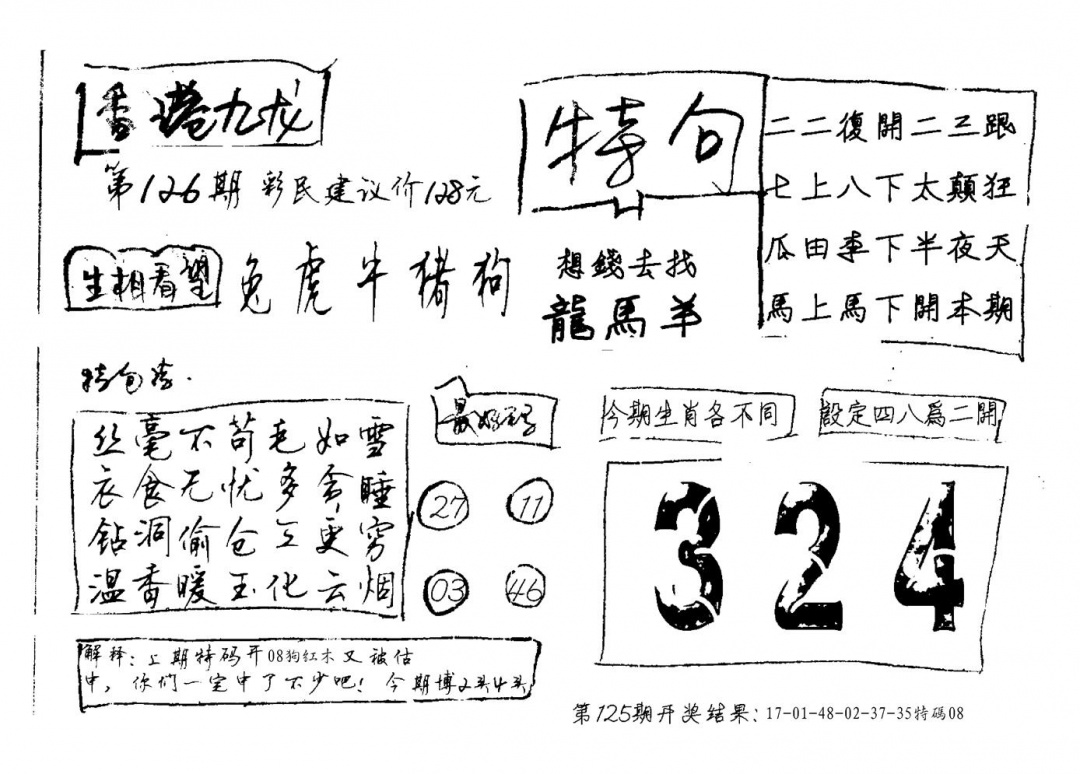 香港九龙
第126期 彩民建议价128元
生相看望
兔虎牛猪狗
特句
想錢去找
龍馬羊
二二復開二三跟
七上八下太顛狂
瓜田李下半夜天
馬上馬下開本期
特包
丝毫不苟毛如雪
衣食无忧多贪睡
钻洞偷仓三更穷
温香暖玉化云烟
27 11
03 46
今期生肖各不同
設定四八爲二開
324
解释:上期特码开08狗红木又被估
中,你们一定中了不少吧!今期博2头4头
第125期开奖结果:17-01-48-02-37-35特碼08